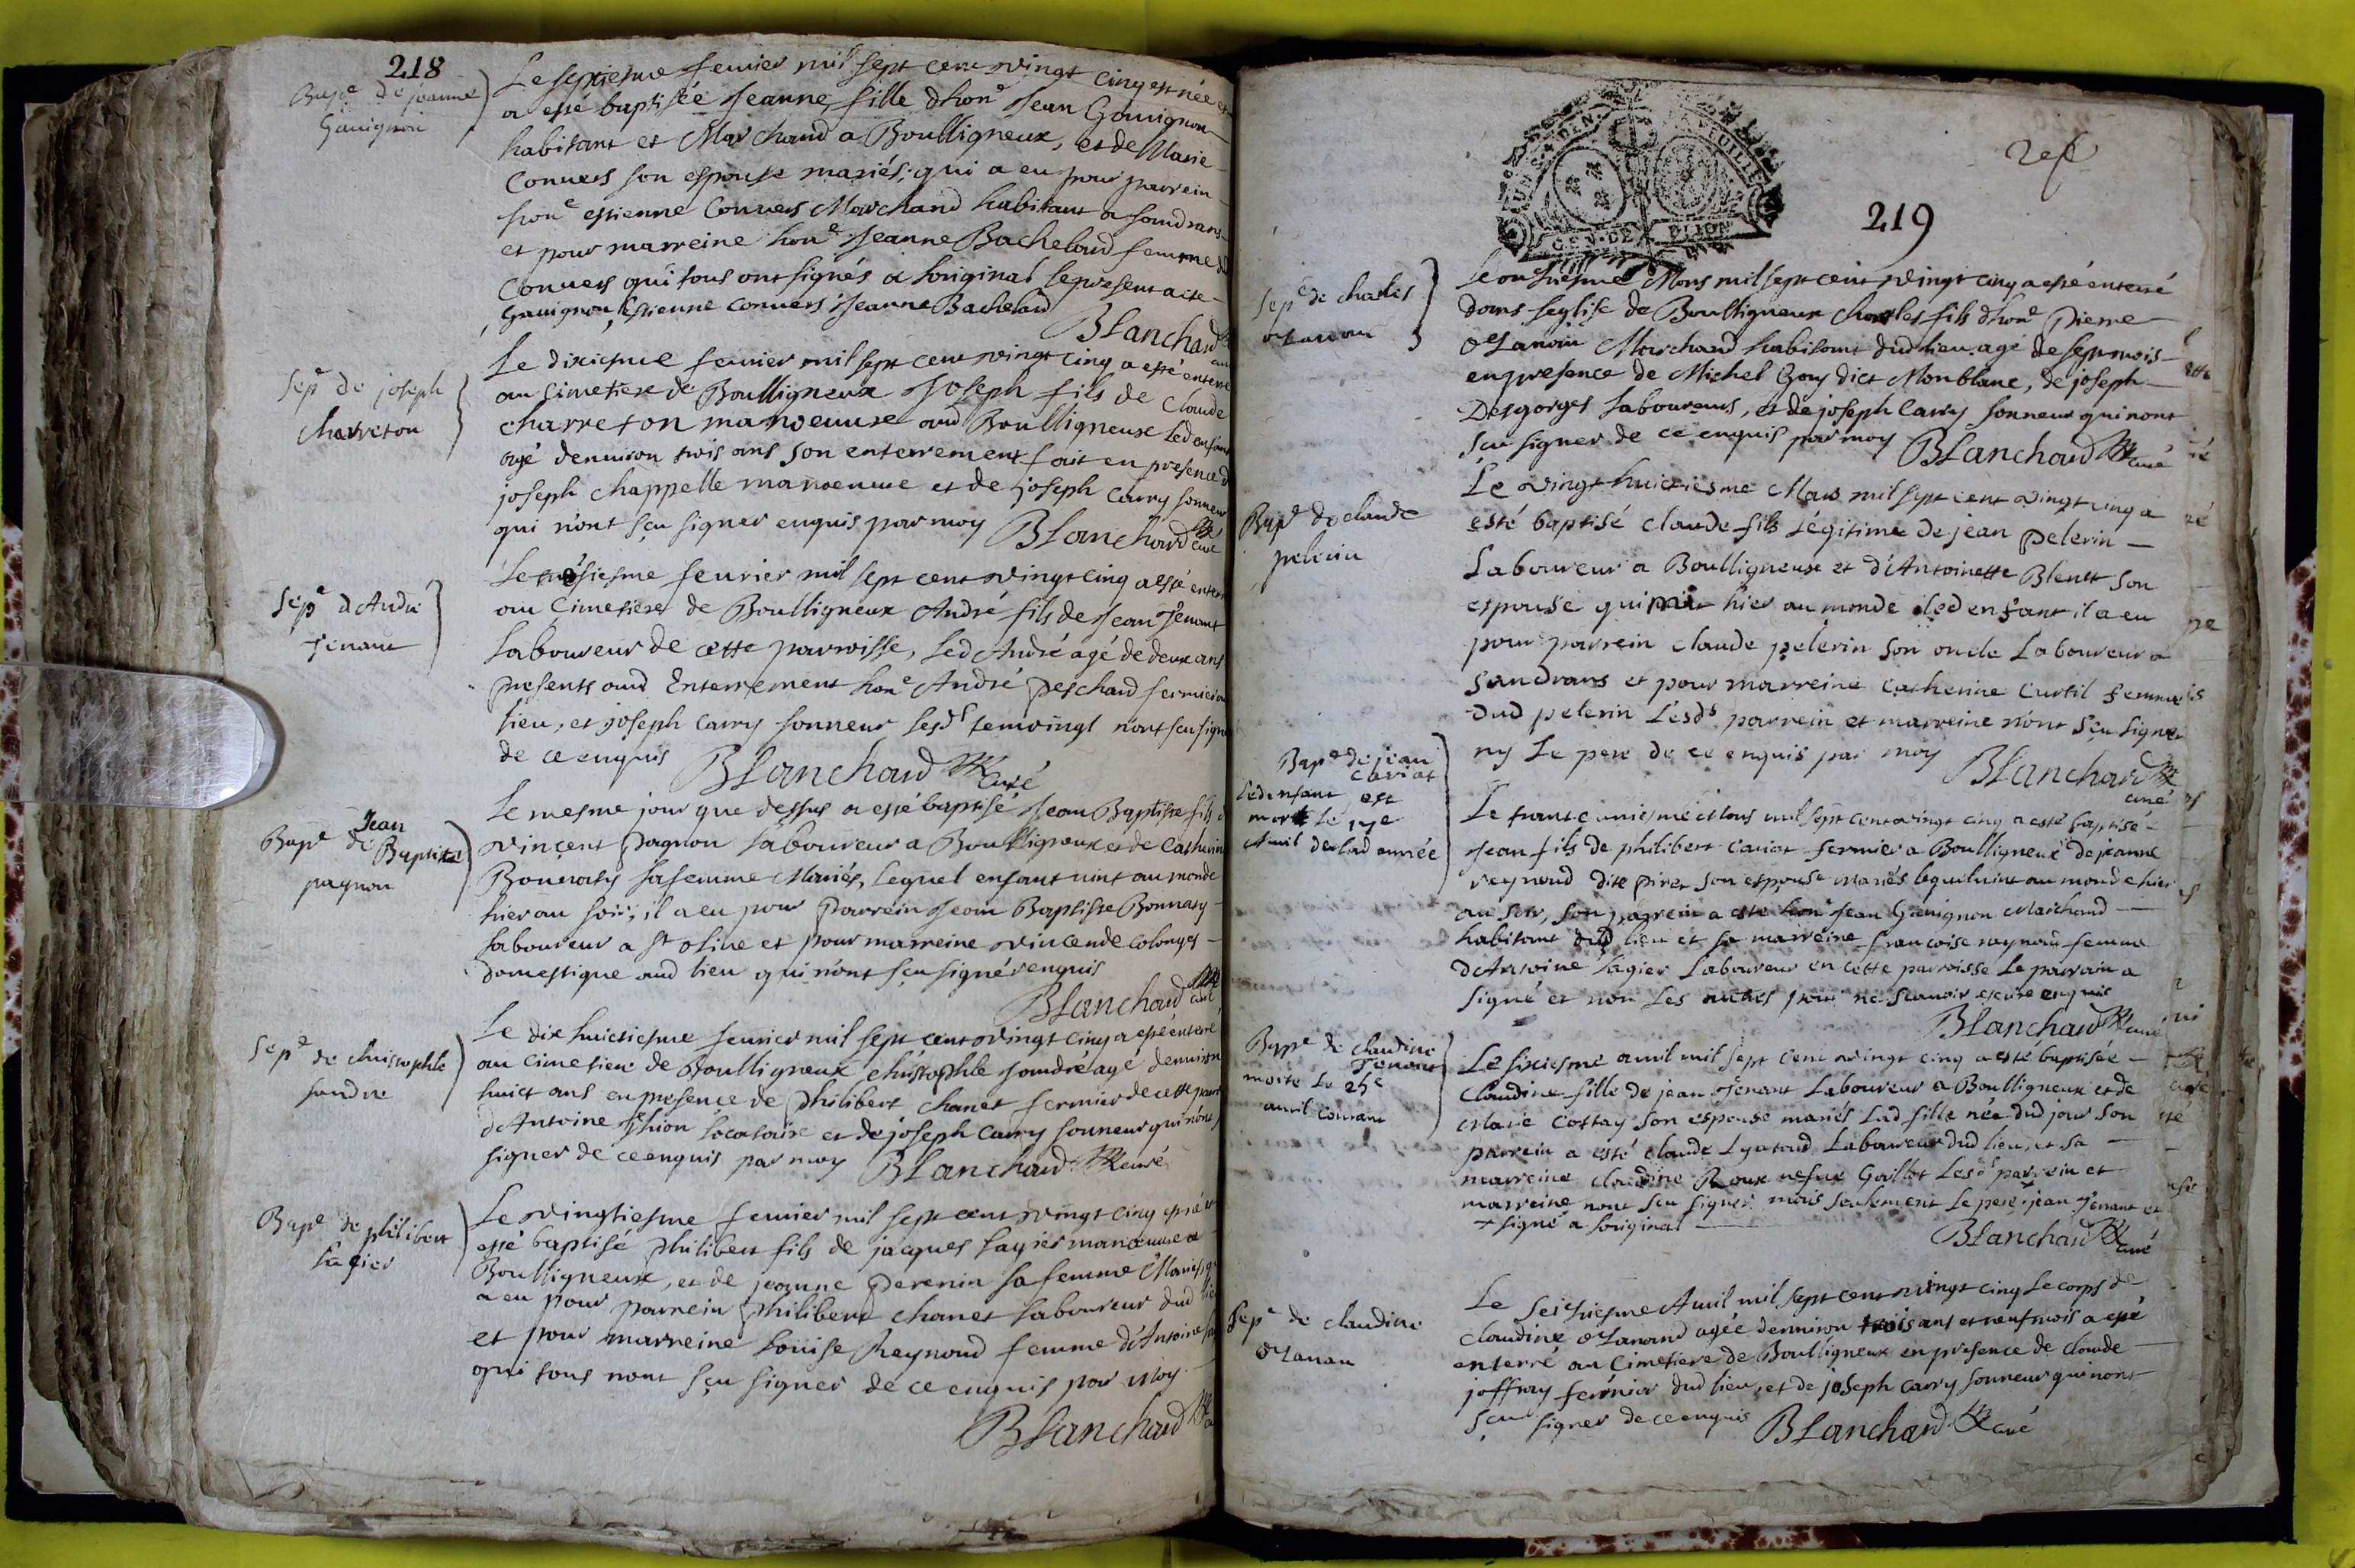 218
Bap.e de jeanne
Gauignon
Le septiesme feurier mil sept cent vingt cinq est née et
a esté baptisée Jeanne fille d'hon.e Jean Gauignon
habitant et Marchand a Boulligneux, et de Marie
Conuers son espouse mariés, qui a eu pour parrein
hon.e estienne Conuers Marchand habitant a sandrans
et pour marreine hon.e Jeanne Bachelard femme
Conuers qui tous ont signés a loriginal le present acte
Gauignon, Estienne conuers, Jeanne Bachelard
Blanchard
Sep.e de joseph
charreton
Le dixiesme feurier mil sept cent vingt cinq a esté enterré
au Cimetiere de Boulligneux Joseph fils de Claude
charreton manoeuure aud Boulligneux led enfant
agé denuiron trois ans son enterrement fait en presence d
joseph chappelle manoeuure et de joseph Carry sonneur
qui n'ont sçu signer enquis par moy Blanchard curé
Sep.e d'André
Jenant
Le tresiesme feurier mil sept cent vingt cinq a esté enter
au Cimetiere de Boulligneux André fils de Jean Jenant
laboureur de cette parroisse, led André agé de deux ans
presents aud Enterrement hon.e André peschard fermier
lieu, et joseph Carry sonneur lesd.s temoingt n'ont sçu sign
de ce enquis Blanchard curé
Bap.e de Jean
Baptiste
pagnon
Le mesme jour que dessus a esté baptisé Jean Baptiste fils d
vincent pagnon laboureur a Boulligneux et de Catherin
sa femme Mariés, lequel enfant uint au monde
hier au soir, il a eu pour Parrein Jean Baptiste
laboureur a S.t oliue et pour marreine vincende Colonges
domestique aud lieu qui n'ont sçu signér enquis
Blanchard curé
Sep.e de christophle
Le dix huictiesme feurier mil sept cent vingt cinq a esté enterré
au cimetiere de Boulligneux christophle agé denuiron
huict ans en presence de philibert Chanet fermier de cette par
d'Antoine locataire et de joseph Carry sonneur qui n'ont
signer de ce enquis par moy Blanchard curé
Bap.e de philibert
lagier
Le vingtiesme feurier mil sept cent vingt cinq est né et
esté baptisé philibert fils de jacques lagier manoeuure a
Boulligneux, et de jeanne perenin sa femme Mariés, q
a eu pour parrein philibert chanet laboureur dud lie
et pour marreine Louise Reynoud femme d'Antoine
qui tous n'ont sçu signer de ce enquis par Moy
Blanchard
219
GEN. DE DIJON
Sep.e de charles
Le onsiesme Mars mil sept cent vingt cinq a esté enterré
dans leglise de Boulligneux charles fils d'hon.e Pierre
Marchand habitant dud lieu agé de sept mois
en presence de Michel Gory dict Monblanc, de joseph
Desgorges laboureurs, et de joseph Carry sonneur qui n'ont
sçu signer de ce enquis par moy Blanchard curé
Bap.e de claude
pelerin
Le vingt huictiesme Mars mil sept cent vingt cinq a
esté baptisé claude fils légitime de jean pelerin
Laboureur a Boulligneux et d'Antoinette son
espouse qui mit hier au monde led enfant il a eu
pour parrein claude pelerin son oncle laboureur a
sandrans et pour marreine catherine curtil femme
dud pelerin Lesd.s parrein et marreine n'ont sçu signer
ny le pere de ce enquis par moy Blanchard
curé
Bap.e de jean
cariat
Led enfant est
mort le
Auril de lad année
Le trante uniesme Mars mil sept cent vingt cinq a esté baptisé
Jean fils de philibert cariat fermier a Boulligneux de jeanne
reynoud dite piret son espouse mariés lequel uint au monde hier
au soir, son parrein a esté hon.e Jean Gauignon Marchand
habitant dud lieu et sa marreine francoise raynoud femme
d'Antoine lagier Laboureur en cette parroisse le parrain a
signé et non les autres pour ne scauoir escrire enquis
Blanchard curé
Bap.e de claudine
Jenant
morte le 25e
auril courant
Le sixiesme auril mil sept cent vingt cinq a esté baptisée
Claudine fille de jean Jenant Laboureur a Boulligneux et de
Marie Cottay son espouse mariés Lad fille née dud jour son
parrein a esté claude Lyatoud Laboureur dud lieu, et sa
marreine claudine Roux Lesd.s parrein et
marreine n'ont sçu signer mais seulement le pere jean Jenant et
+ signé a loriginal Blanchard curé
Sep.e de claudine
Le seiziesme Auril mil sept cent vingt cinq le corps de
claudine agée denuiron trois ans et neuf mois a esté
enterré au Cimetiere de Boulligneux en presence de claude
joffray fermier dud lieu, et de joseph Carry sonneur qui n'ont
sçu signer de ce enquis Blanchard curé